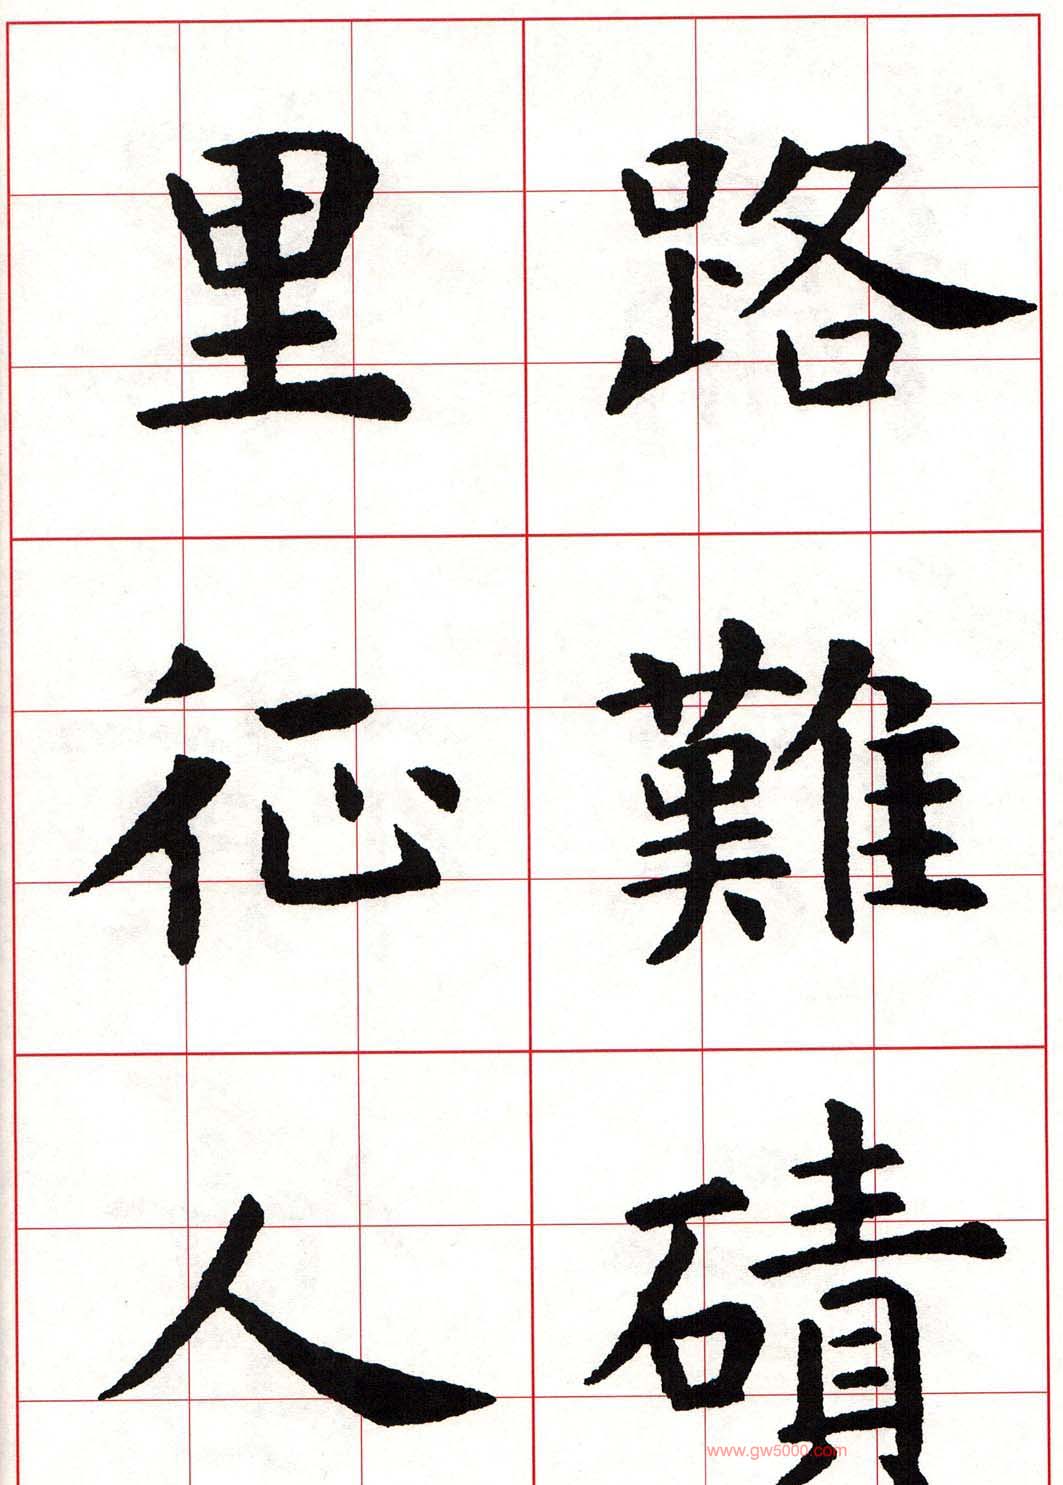 路難磧
里征人
www.gw5000.com